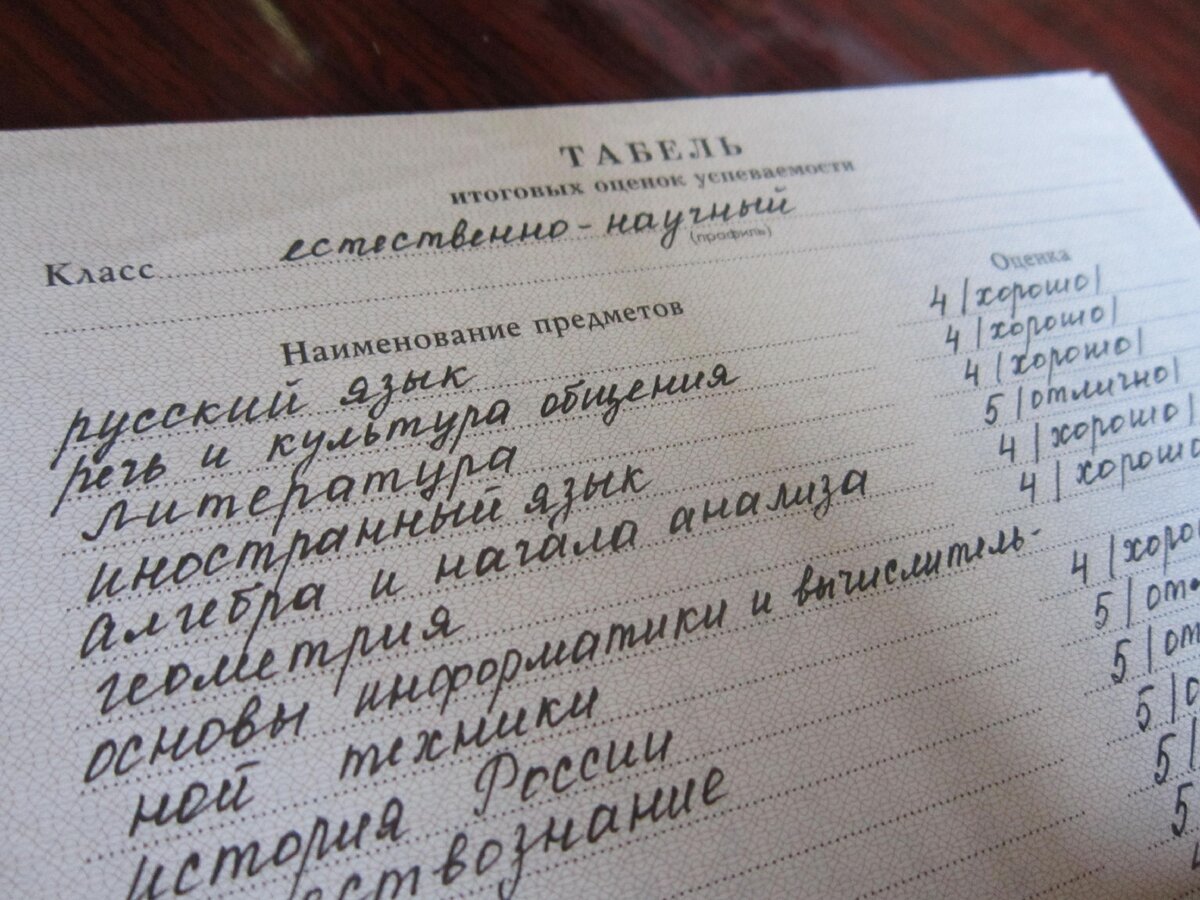 ТАБЕЛЬ
итоговых оценок успеваемости
Класс естественно-научный
(профиль)
Наименование предметов Оценка
русский язык 4 |хорошо|
речь и культура общения 4 |хорошо|
литература 4 |хорошо|
иностранный язык 5 |отлично|
алгебра и начала анализа 4 |хорошо|
геометрия 4 |хорошо
основы информатики и вычислитель-
ной техники 4 |хоро
история России 5 |отл
ествознание 5 |от
5 |о
5 |
5